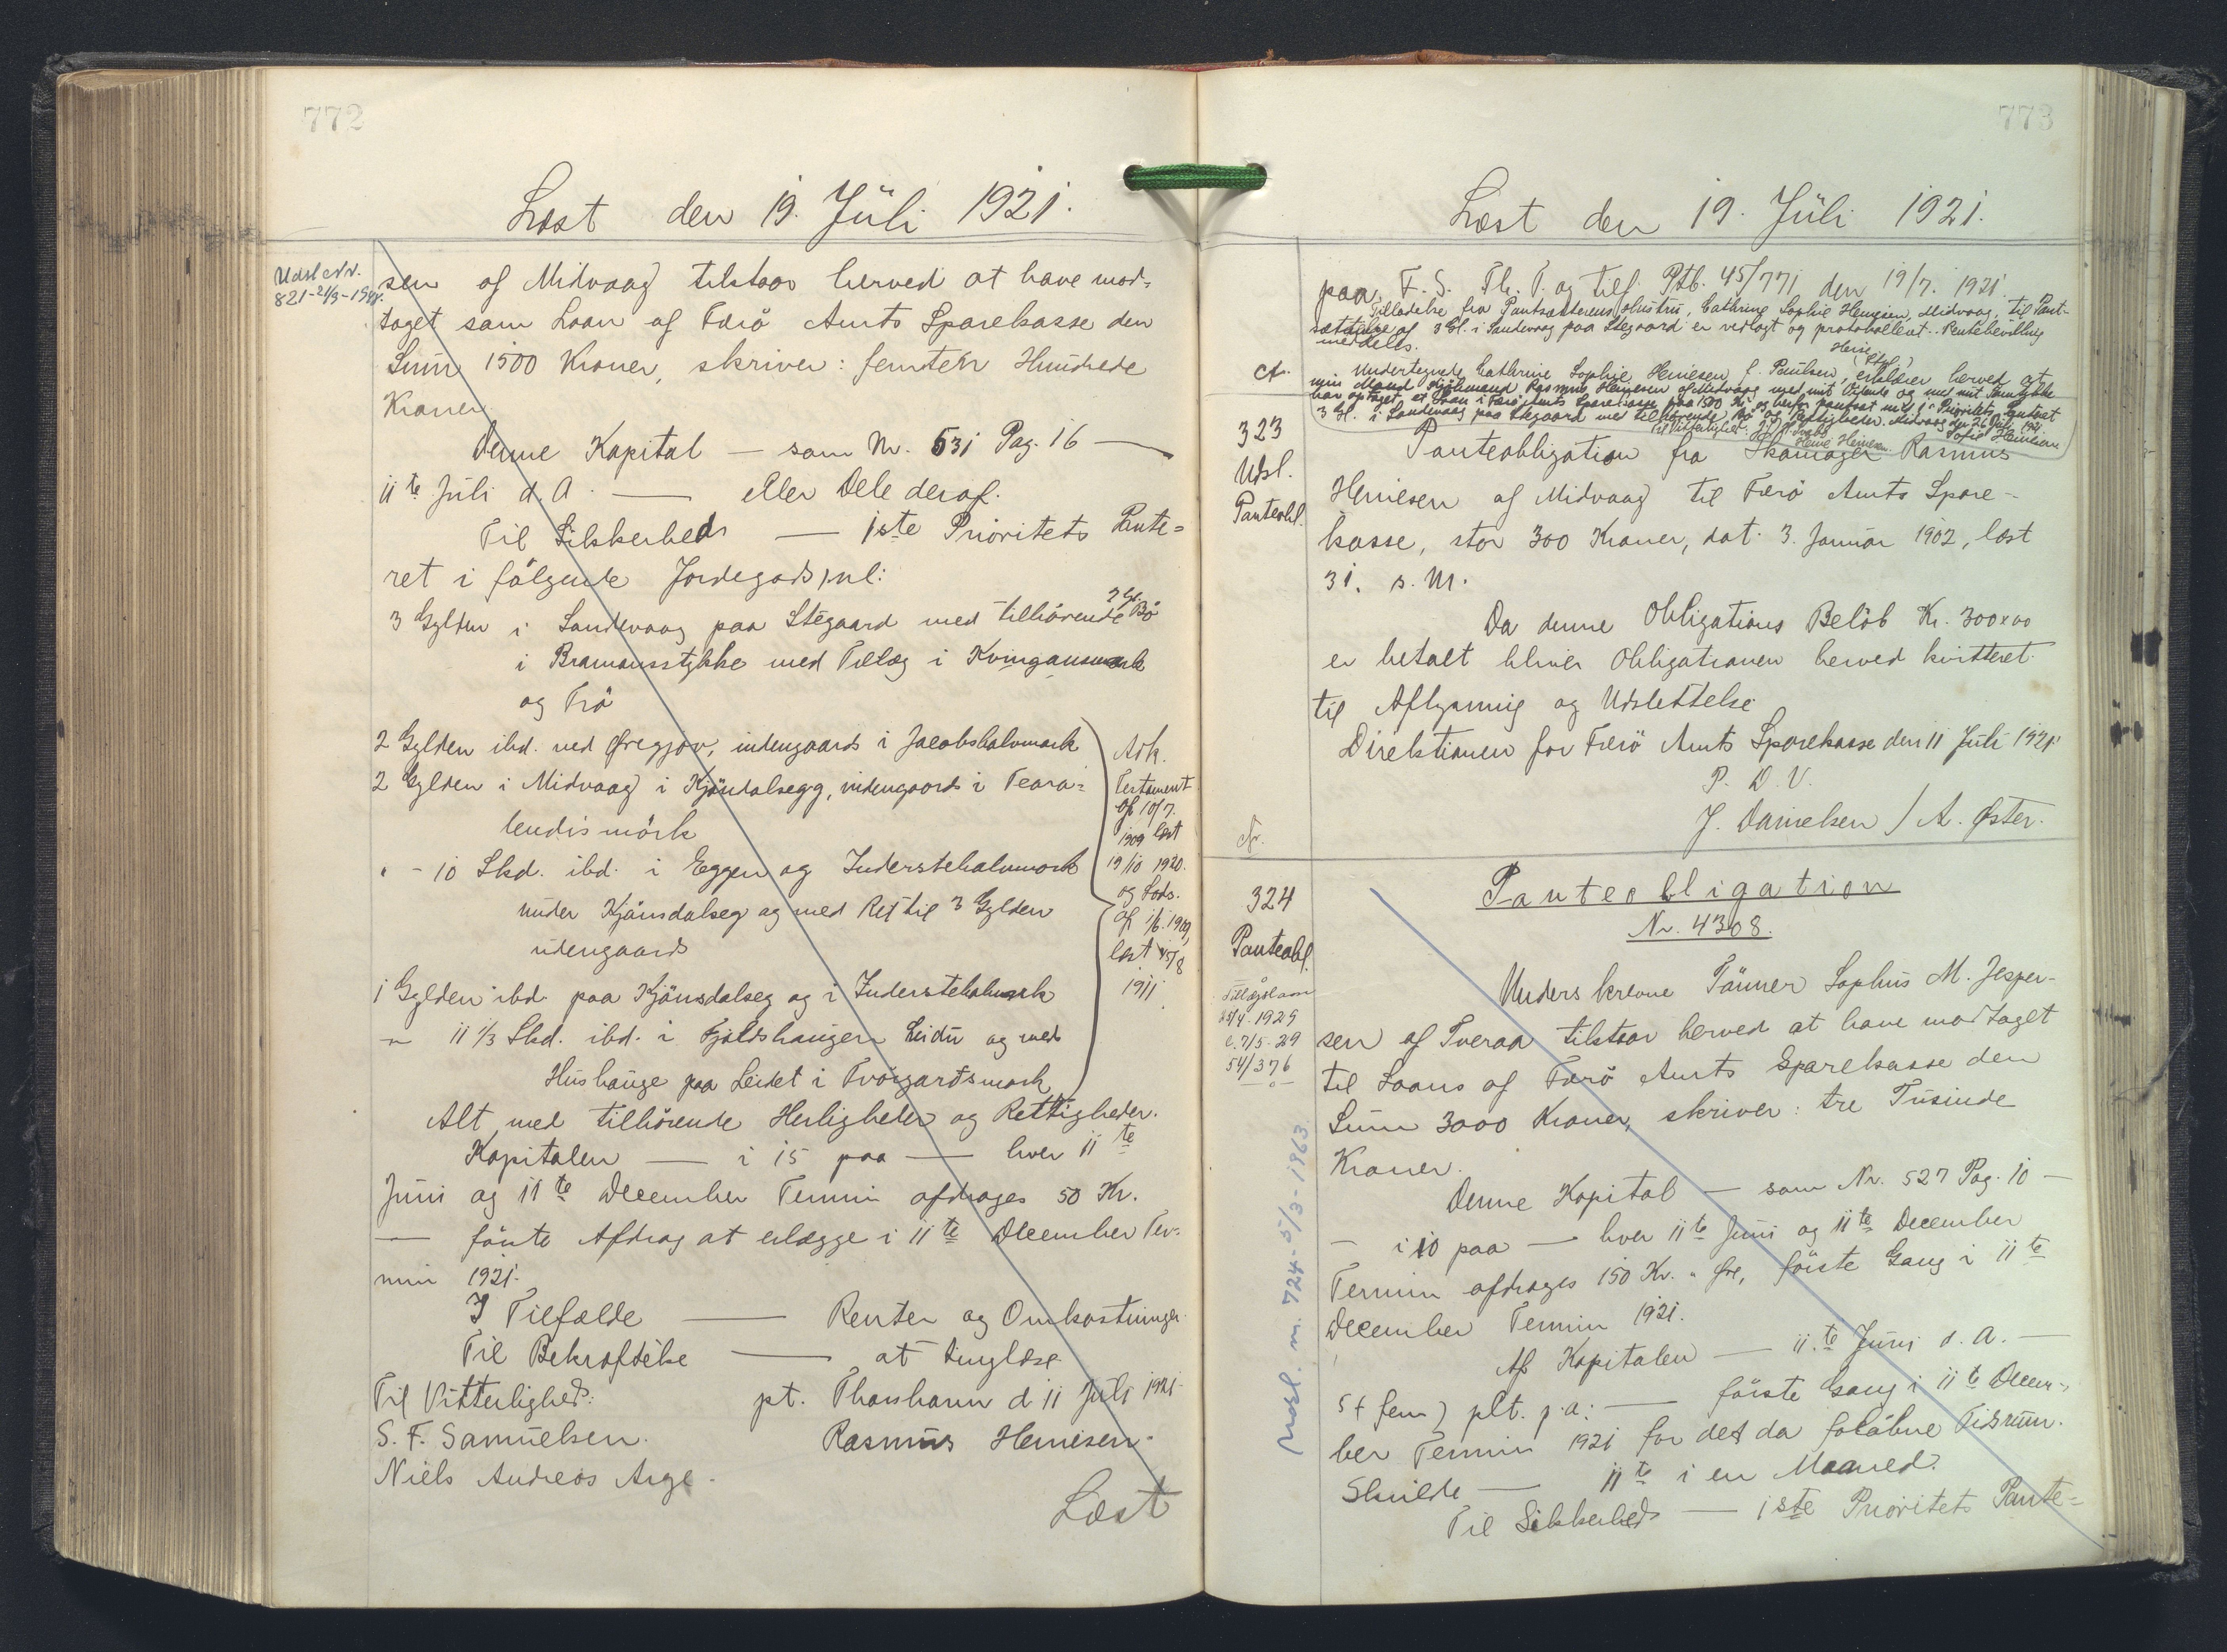 772
Læst den 19. Jüli 1921.
Udsl. Nr.
821-21/9-19
sen af Midvaag tilstaar herved at have mod-
taget som Laan af Færö Amts Sparekasse den
Sum 1500 Kroner, skriver: femten Hundrede
Kroner.
Denne Kapital — som Nr. 531 Pag. 16 —
11te Juli d. A. — eller Dele deraf.
Til Sikkerhed — 1ste Prioritets Pante=
ret i følgende Jordegods, nl:
3 Gylden i Sandevaag paa Stegaard med tilhörende 3 Gl. Bö
i Bramansstykke med Tillæg i Kvingansmark
og Trö
2 Gylden ibd. ved Øregjov, indengaards i Jacobshalvmark
2 Gylden i Midvaag i Kjönsdalsegg, indengaards i Teara=
lendismörk
" - 10 Skd. ibd. i Eggen og Inderstehalvmark
under Kjönsdalseg og med Ret til 3 Gylden
udengaards
1 Gylden ibd. paa Kjönsdalseg og i Inderstehalvmark
" 11 1/3 Skd. ibd. i Fjoldshaugen Leidu og med
Hushauge paa Leidet i Tvörgardsmark
Ark.
Testament
af 10/7.
1909 læst
19/10 1920.
og Sods.
af 1/6. 1909,
læst 15/8
1911.
Alt med tilhörende Herligheder og Rettigheder.
Kapitalen — i 15 paa — hver 11te
Juni og 11te December Termin afdrages 50 Kr.
— förste Afdrag at erlægge i 11te December Ter-
min 1921.
I Tilfælde — Renter og Omkostninger.
Til Bekræftelse — at tinglæse.
Til Vitterlighed: pt. Thorshavn d 11 Juli 1921.
S. F. Samuelsen. Rasmus Heinesen.
Niels Andreas Arge.
Læst
773
Læst den 19. Jüli 1921.
paa F. S. Th. P. og tilf. Ptb. 45/771 den 19/7. 1921.
Tilladelse fra Pantsætterens Hustru, Cathrine Sophie Heinesen, Midvaag, til Pant-
sættelse af 3 Gl. i Sandevaag paa Stegaard er vedlagt og protokolleret. Rentebevilling
meddeles.
Undertegnede Cathrine Sophie Heinesen f. Paulsen, erklærer herved at
min Mand Rasmus Heinesen af Midvaag med mit Vidende og med mit Samtykke
har optaget et Laan i Færö Amts Sparekasse paa 1500 Kr. og herfor pantsat med 1ste Prioritets Panteret
3 Gl. i Sandevaag paa Stegaard med tilhörende Bö og Rettigheder. Midvaag den 26 Juli 1921.
Sofie Heinesen
323
Udsl.
Panteobl.
Panteobligation fra Skomager Rasmus
Heinesen af Midvaag til Færö Amts Spare-
kasse, stor 300 Kroner, dat. 3. Januar 1902, læst
31. s. M.
Da denne Obligations Belöb Kr. 300x00
er betalt bliver Obligationen herved kvitteret
til Aflysning og Udslettelse.
Direktionen for Færö Amts Sparekasse den 11 Juli 1921
P. D. V.
J. Danielsen / A. Øster.
324
Panteobl.
Tillægslaan
25/4-1929
l. 7/5-29
54/376
Udsl. m. 724-5/3-1963
Panteobligation
Nr. 4308.
Underskrevne Tömrer Sophus M. Jesper-
sen af Tveraa tilstaar herved at have modtaget
til Laans af Færö Amts Sparekasse den
Sum 3000 Kroner, skriver: tre Tusinde
Kroner.
Denne Kapital — som Nr. 527 Pag. 10 —
— i 10 paa — hver 11te Juni og 11te December
Termin afdrages 150 Kr. " Øre, förste Gang i 11te
December Termin 1921.
Af Kapitalen — 11.te Juni d. A. —
5 (fem) plt. p.a: — förste Gang i 11te Decem-
ber Termin 1921 for det da forløbne Tidsrum.
Skulde — 11te i en Maaned.
Til Sikkerhed — 1ste Prioritets Pante=